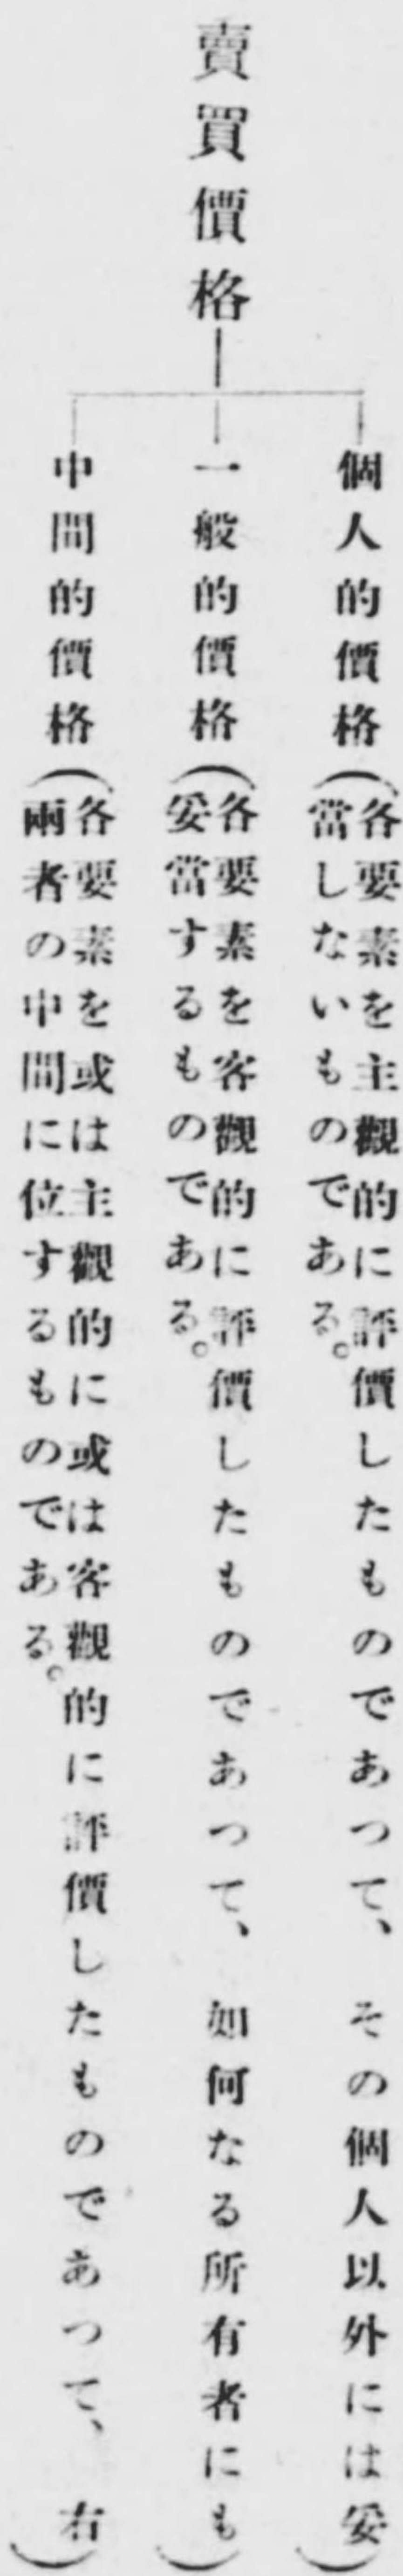 賣買價格
個人的價格
(各要素を主觀的に評價したものであつて、その個人以外には妥
當しないものである。)
一般的價格
(各要素を客觀的に評價したものであつて、如何なる所有者にも
妥當するものである。)
中間的價格
(各要素を或は主觀的に或は客觀的に評價したものであつて、右
兩者の中間に位するものである。)